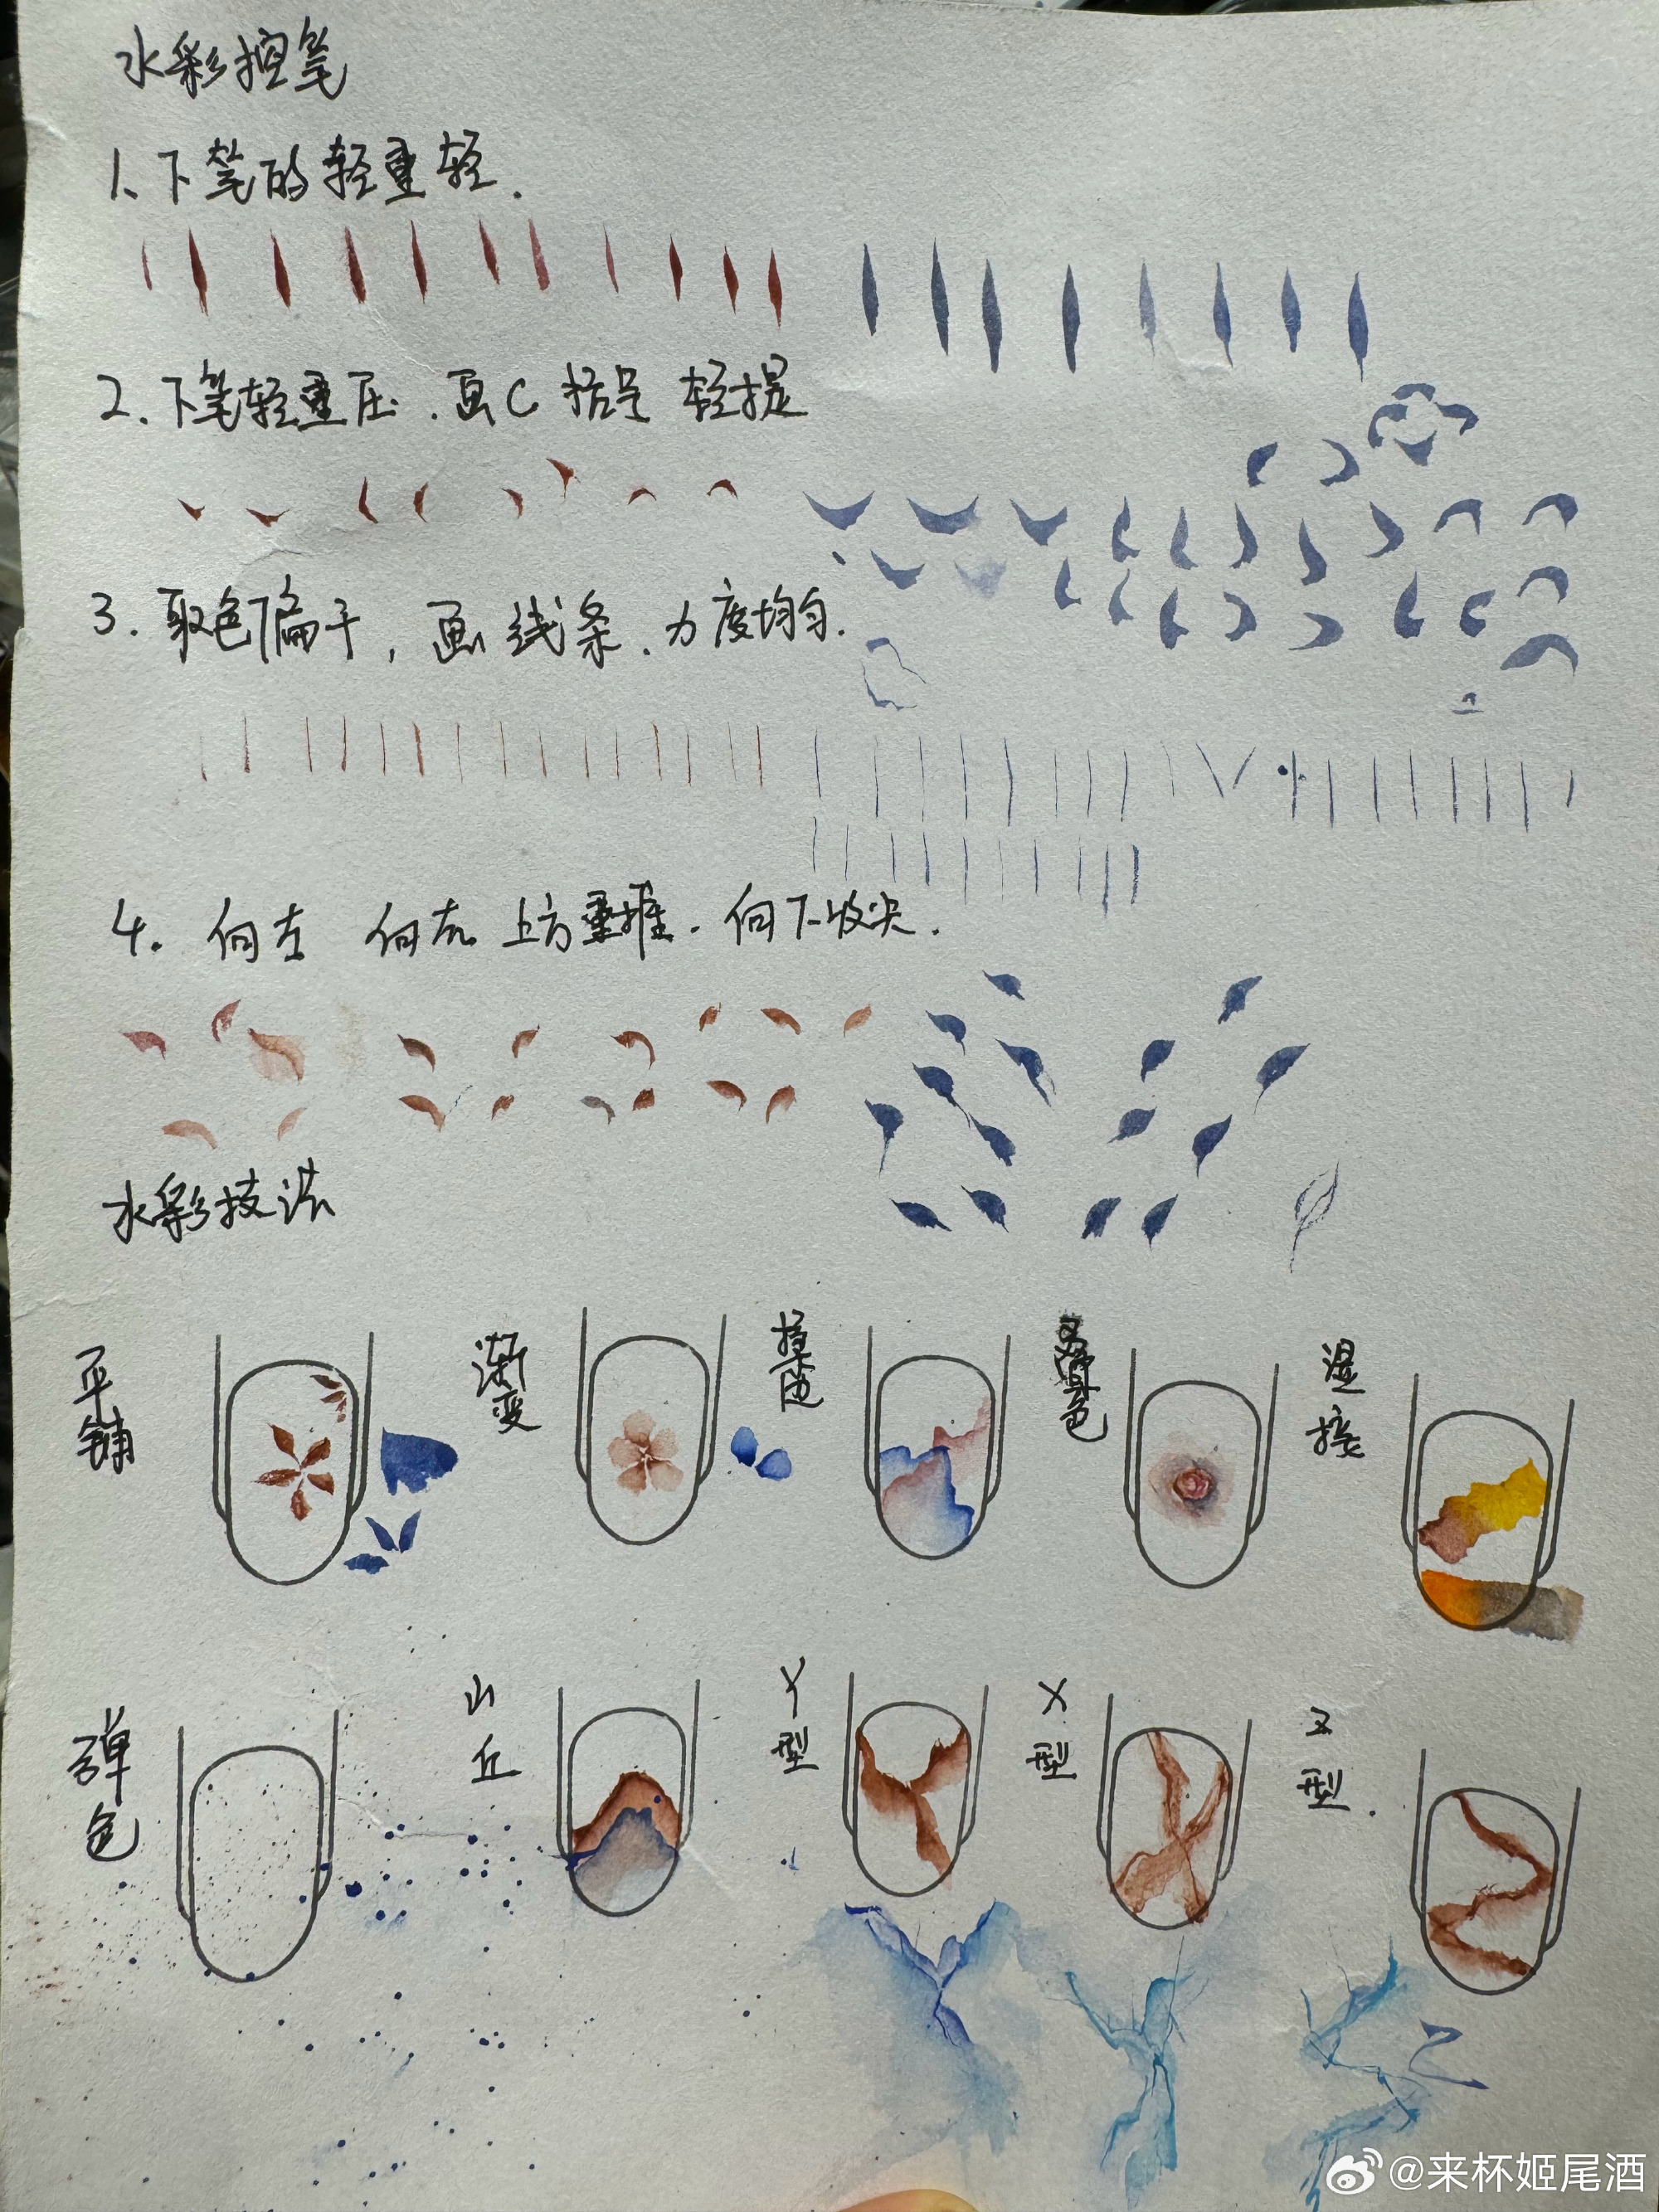 水彩控笔
1、下笔的轻重轻.
2.下笔轻重压.画C 括号 轻提
3.取色偏干,画线条.力度均匀.
4. 向左 向右 上方重推.向下收尖.
水彩技法
平铺
渐变
接色
色
湿接
弹色
山丘
Y型
X型
Z型.
@来杯姬尾酒